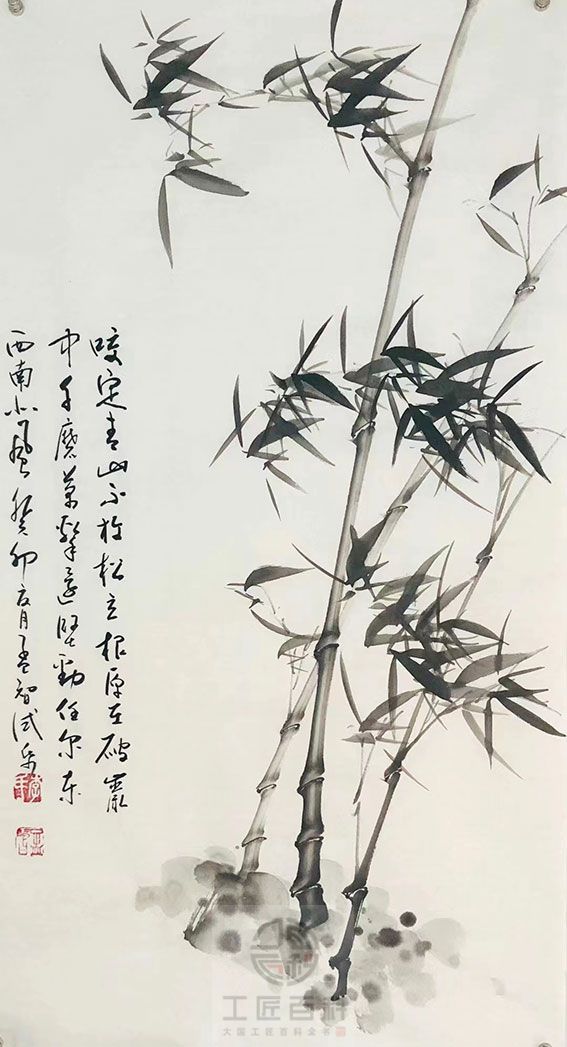 咬定青山不放松立根原在破巖
中千磨萬擊還堅勁任尔东
西南北風癸卯月智
工匠百科
大国工匠百科全书